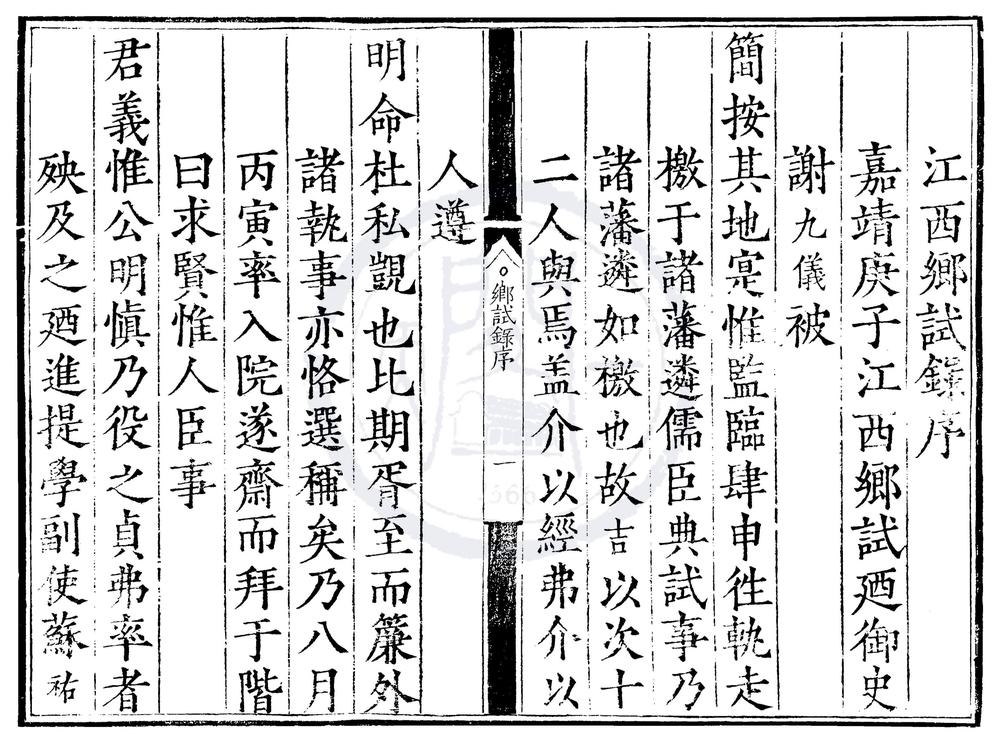 江西鄉試錄序
嘉靖庚子江西鄉試廼御史
謝九儀被
簡按其地寔惟監臨肆申徃軌走
檄于諸藩遴儒臣典試事乃
諸藩遴如檄也故吉以次十
二人與焉盖介以經弗介以
鄉試錄序
一
人遵
明命杜私覬也比期胥至而簾外
諸執事亦恪選稱矣乃八月
丙寅率入院遂齋而拜于階
曰求賢惟人臣事
君義惟公明慎乃役之貞弗率者
殃及之廼進提學副使蘇祐